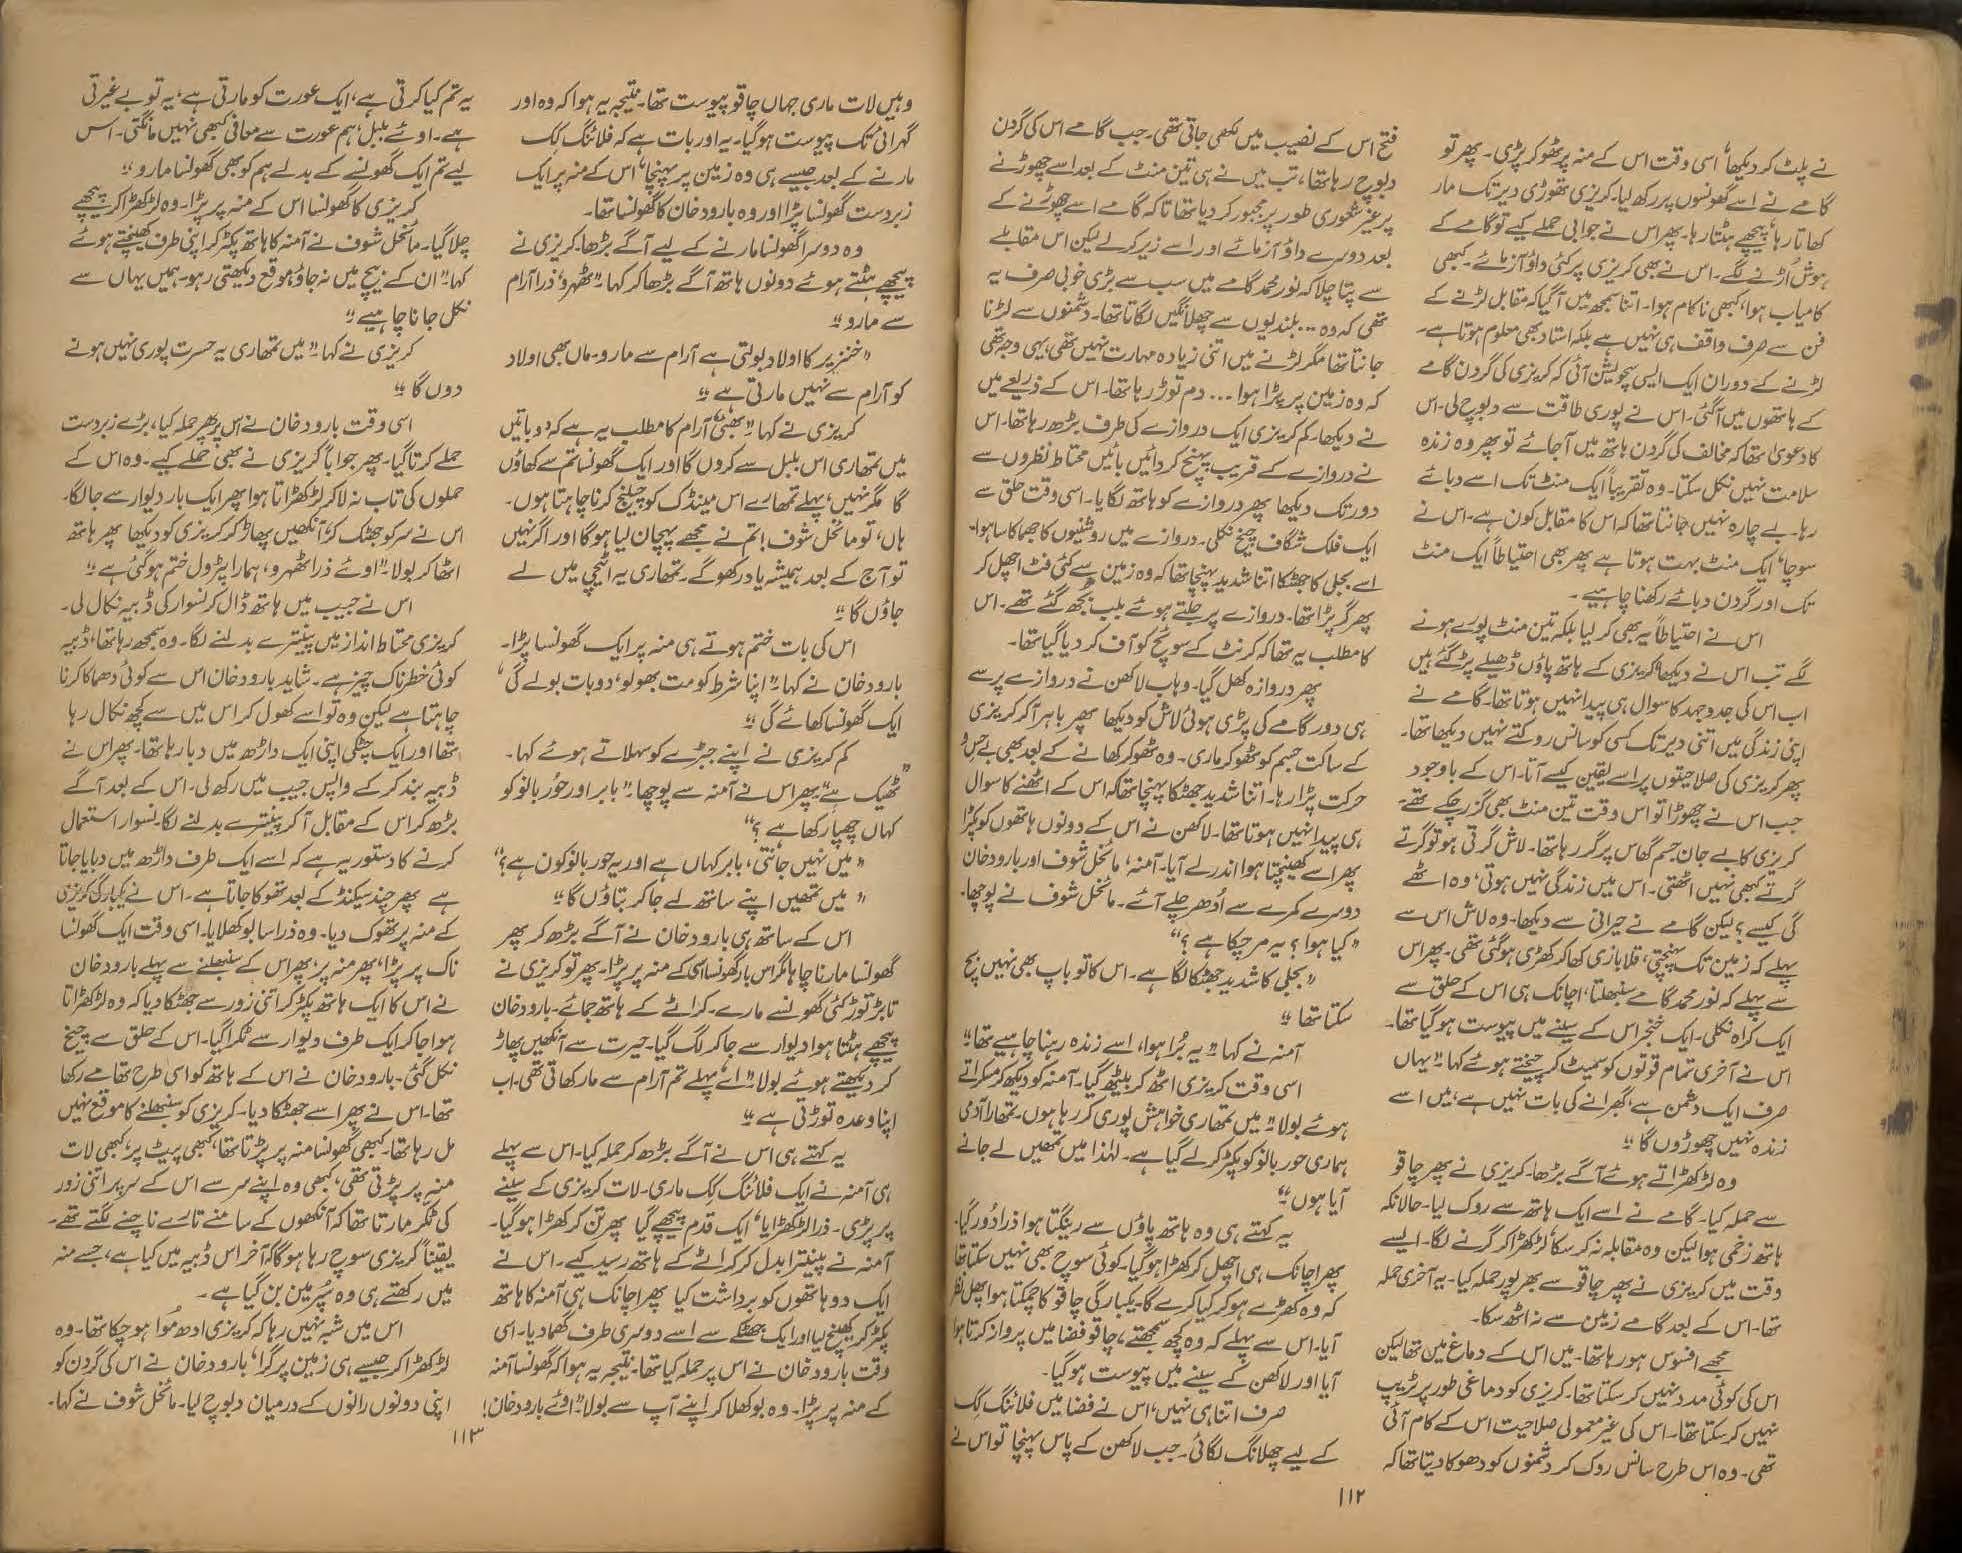 نے پلٹ کر دیکھا، اسی وقت اس کے منہ پر ٹھوکر پڑی۔ پھر تو
گامے نے اسے گھونسوں پر رکھ لیا۔ کریزی تھوڑی دیر تک مار
کھاتا رہا، پیچھے ہٹتا رہا۔ پھر اس نے جوابی حملے کیے تو گامے کے
ہوش اُڑنے لگے۔ اس نے بھی کریزی پر کئی داؤ آزمائے۔ کبھی
کامیاب ہوا، کبھی ناکام ہوا۔ اتنا سمجھ میں آ گیا کہ مقابل لڑنے کے
فن سے صرف واقف ہی نہیں ہے بلکہ استاد بھی معلوم ہوتا ہے۔
لڑنے کے دوران ایک ایسی سچویشن آئی کہ کریزی کی گردن گامے
کے ہاتھوں میں آ گئی۔ اس نے پوری طاقت سے دبوچ لی۔ اس
کا دعویٰ تھا کہ مخالف کی گردن ہاتھ میں آ جائے تو پھر وہ زندہ
سلامت نہیں نکل سکتا۔ وہ تقریباً ایک منٹ تک اسے دبائے
رہا۔ بے چارہ نہیں جانتا تھا کہ اس کا مقابل کون ہے۔ اس نے
سوچا، ایک منٹ بہت ہوتا ہے پھر بھی احتیاطاً ایک منٹ
تک اور گردن دبائے رکھنا چاہیے۔
اس نے احتیاطاً یہ بھی کر لیا بلکہ تین منٹ پورے ہونے
لگے تب اس نے دیکھا، کریزی کے ہاتھ پاؤں ڈھیلے پڑ گئے ہیں
اب اس کی جدوجہد کا سوال ہی پیدا نہیں ہوتا تھا۔ گامے نے
اپنی زندگی میں اتنی دیر تک کسی کو سانس روکتے نہیں دیکھا تھا۔
پھر کریزی کی صلاحیتوں پر اسے یقین کیسے آتا۔ اس کے باوجود
جب اس نے چھوڑا تو اس وقت تین منٹ بھی گزر چکے تھے۔
کریزی کا بے جان جسم گھاس پر گر رہا تھا۔ لاش گرتی ہو تو گرتے
گرتے کبھی نہیں اٹھتی۔ اس میں زندگی نہیں ہوتی، وہ اٹھے
گی کیسے؟ لیکن گامے نے حیرانی سے دیکھا۔ وہ لاش اس سے
پہلے کہ زمین تک پہنچتی، قلابازی کھا کر کھڑی ہو گئی تھی۔ پھر اس
سے پہلے کہ نور محمد گامے سنبھلتا، اچانک ہی اس کے حلق سے
ایک کراہ نکلی۔ ایک خنجر اس کے سینے میں پیوست ہو گیا تھا۔
اس نے آخری تمام قوتوں کو سمیٹ کر چیختے ہوئے کہا۔ "یہاں
صرف ایک دشمن ہے، گھبرانے کی بات نہیں ہے، میں اسے
زندہ نہیں چھوڑوں گا"
وہ لڑکھڑاتے ہوئے آگے بڑھا۔ کریزی نے پھر چاقو
سے حملہ کیا۔ گامے نے اسے ایک ہاتھ سے روک لیا۔ حالانکہ
ہاتھ زخمی ہوا لیکن وہ مقابلہ نہ کر سکا، لڑکھڑا کر گرنے لگا۔ ایسے
وقت میں کریزی نے پھر چاقو سے بھرپور حملہ کیا۔ یہ آخری حملہ
تھا۔ اس کے بعد گامے زمین سے نہ اٹھ سکا۔
مجھے افسوس ہو رہا تھا۔ میں اس کے دماغ میں تھا لیکن
اس کی کوئی مدد نہیں کر سکتا تھا۔ کریزی کو دماغی طور پر ٹریپ
نہیں کر سکتا تھا۔ اس کی غیر معمولی صلاحیت اس کے کام آئی
تھی۔ وہ اس طرح سانس روک کر دشمنوں کو دھوکا دیتا تھا کہ
فتح اس کے نصیب میں لکھی جاتی تھی۔ جب گامے اس کی گردن
دبوچ رہا تھا، تب میں نے ہی تین منٹ کے بعد اسے چھوڑنے
پر غیر شعوری طور پر مجبور کر دیا تھا تاکہ گامے اسے چھوڑنے کے
بعد دوسرے داؤ آزمائے اور اسے زیر کر لے لیکن اس مقابلے
سے پتا چلا کہ نور محمد گامے میں سب سے بڑی خوبی صرف یہ
تھی کہ وہ ... بلندیوں سے چھلانگیں لگاتا تھا۔ دشمنوں سے لڑنا
جانتا تھا مگر لڑنے میں اتنی زیادہ مہارت نہیں تھی، یہی وجہ تھی
کہ وہ زمین پر پڑا ہوا ... دم توڑ رہا تھا۔ اس کے ذریعے میں
نے دیکھا۔ کم کریزی ایک دروازے کی طرف بڑھ رہا تھا۔ اس
نے دروازے کے قریب پہنچ کر دائیں بائیں محتاط نظروں سے
دور تک دیکھا پھر دروازے کو ہاتھ لگایا۔ اسی وقت حلق سے
ایک فلک شگاف چیخ نکلی۔ دروازے میں روشنیوں کا جھماکا سا ہوا۔
اسے بجلی کا جھٹکا اتنا شدید پہنچا تھا کہ وہ زمین سے کئی فٹ اچھل کر
پھر گر پڑا تھا۔ دروازے پر جلتے ہوئے بلب بجھ گئے تھے۔ اس
کا مطلب یہ تھا کہ کرنٹ کے سوئچ کو آف کر دیا گیا تھا۔
پھر دروازہ کھل گیا۔ وہاب لاکھن نے دروازے پر سے
ہی دور گامے کی پڑی ہوئی لاش کو دیکھا پھر باہر آ کر کریزی
کے ساکت جسم کو ٹھوکر ماری۔ وہ ٹھوکر کھانے کے بعد بھی بے حس و
حرکت پڑا رہا۔ اتنا شدید جھٹکا پہنچا تھا کہ اس کے اٹھنے کا سوال
ہی پیدا نہیں ہوتا تھا۔ لاکھن نے اس کے دونوں ہاتھوں کو پکڑا
پھر اسے کھینچتا ہوا اندر لے آیا۔ آمنہ، مائخل شوف اور بارود خان
دوسرے کمرے سے اُدھر چلے آئے۔ مائخل شوف نے پوچھا۔
"کیا ہوا؟ یہ مر چکا ہے؟"
"بجلی کا شدید جھٹکا لگا ہے۔ اس کا تو باپ بھی نہیں بچ
سکتا تھا"
آمنہ نے کہا۔ "یہ بُرا ہوا، اسے زندہ رہنا چاہیے تھا"
اسی وقت کریزی اٹھ کر بیٹھ گیا۔ آمنہ کو دیکھ کر مسکراتے
ہوئے بولا۔ "میں تمھاری خواہش پوری کر رہا ہوں۔ تمھارا آدمی
ہماری حور بانو کو پکڑ کر لے گیا ہے۔ لہٰذا میں تمھیں لے جانے
آیا ہوں"
یہ کہتے ہی وہ ہاتھ پاؤں سے رینگتا ہوا ذرا دُور گیا۔
پھر اچانک ہی اچھل کر کھڑا ہو گیا۔ کوئی سوچ بھی نہیں سکتا تھا
کہ وہ کھڑے ہو کر کیا کرے گا۔ یکبارگی چاقو کا چمکتا ہوا پھل نظر
آیا۔ اس سے پہلے کہ وہ کچھ سمجھتے، چاقو فضا میں پرواز کرتا ہوا
آیا اور لاکھن کے سینے میں پیوست ہو گیا۔
صرف اتنا ہی نہیں، اس نے فضا میں فلائنگ کِک
کے لیے چھلانگ لگائی۔ جب لاکھن کے پاس پہنچا تو اس نے
۱۱۲
وہیں لات ماری جہاں چاقو پیوست تھا۔ نتیجہ یہ ہوا کہ وہ اور
گہرائی تک پیوست ہو گیا۔ یہ اور بات ہے کہ فلائنگ کِک
مارنے کے بعد جیسے ہی وہ زمین پر پہنچا، اس کے منہ پر ایک
زبردست گھونسا پڑا اور وہ بارود خان کا گھونسا تھا۔
وہ دوسرا گھونسا مارنے کے لیے آگے بڑھا۔ کریزی نے
پیچھے ہٹتے ہوئے دونوں ہاتھ آگے بڑھا کر کہا۔ "ٹھہرو، ذرا آرام
سے مارو"
"خنزیر کا اولاد بولتی ہے آرام سے مارو۔ ماں بھی اولاد
کو آرام سے نہیں مارتی ہے"
کریزی نے کہا۔ "بھئی، آرام کا مطلب یہ ہے کہ دو باتیں
میں تمھاری اس بلبل سے کروں گا اور ایک گھونسا تم سے کھاؤں
گا مگر نہیں، پہلے تمھارے اس مینڈک کو چیلنج کرنا چاہتا ہوں۔
ہاں، تو مائخل شوف! تم نے مجھے پہچان لیا ہو گا اور اگر نہیں
تو آج کے بعد ہمیشہ یاد رکھو گے۔ تمھاری یہ اٹیچی میں لے
جاؤں گا"
اس کی بات ختم ہوتے ہی منہ پر ایک گھونسا پڑا۔
بارود خان نے کہا۔ "اپنا شرط کو مت بھولو، دو بات بولے گی،
ایک گھونسا کھائے گی"
کم کریزی نے اپنے جبڑے کو سہلاتے ہوئے کہا۔
"ٹھیک ہے" پھر اس نے آمنہ سے پوچھا۔ "بابر اور حُور بانو کو
کہاں چھپا رکھا ہے؟"
"میں نہیں جانتی، بابر کہاں ہے اور یہ حور بانو کون ہے؟"
"میں تمھیں اپنے ساتھ لے جا کر بتاؤں گا"
اس کے ساتھ ہی بارود خان نے آگے بڑھ کر پھر
گھونسا مارنا چاہا مگر اس بار گھونسا اسی کے منہ پر پڑا۔ پھر تو کریزی نے
تابڑ توڑ کئی گھونسے مارے۔ کراٹے کے ہاتھ جمائے۔ بارود خان
پیچھے ہٹتا ہوا دیوار سے جا کر لگ گیا۔ حیرت سے آنکھیں پھاڑ
کر دیکھتے ہوئے بولا۔ "اے، پہلے تم آرام سے مار کھاتی تھی۔ اب
اپنا وعدہ توڑتی ہے"
یہ کہتے ہی اس نے آگے بڑھ کر حملہ کیا۔ اس سے پہلے
ہی آمنہ نے ایک فلائنگ کِک ماری۔ لات کریزی کے سینے
پر پڑی۔ ذرا لڑکھڑایا، ایک قدم پیچھے گیا پھر تن کر کھڑا ہو گیا۔
آمنہ نے پینترا بدل کر کراٹے کے ہاتھ رسید کیے۔ اس نے
ایک دو ہاتھوں کو برداشت کیا پھر اچانک ہی آمنہ کا ہاتھ
پکڑ کر کھینچ لیا اور ایک جھٹکے سے اسے دوسری طرف گھما دیا۔ اسی
وقت بارود خان نے اس پر حملہ کیا تھا۔ نتیجہ یہ ہوا کہ گھونسا آمنہ
کے منہ پر پڑا۔ وہ بوکھلا کر اپنے آپ سے بولا۔ "اوئے بارود خان!
یہ تم کیا کرتی ہے، ایک عورت کو مارتی ہے، یہ تو بے غیرتی
ہے۔ اوئے بلبل، ہم عورت سے معافی کبھی نہیں مانگتی۔ اس
لیے تم ایک گھونسے کے بدلے ہم کو بھی گھونسا مارو"
کریزی کا گھونسا اس کے منہ پر پڑا۔ وہ لڑکھڑا کر پیچھے
چلا گیا۔ مائخل شوف نے آمنہ کا ہاتھ پکڑ کر اپنی طرف کھینچتے ہوئے
کہا۔ "ان کے بیچ میں نہ جاؤ، موقع دیکھتی رہو۔ ہمیں یہاں سے
نکل جانا چاہیے"
کریزی نے کہا۔ "میں تمھاری یہ حسرت پوری نہیں ہونے
دوں گا"
اسی وقت بارود خان نے اس پر پھر حملہ کیا، بڑے زبردست
حملے کرتا گیا۔ پھر جواباً کریزی نے بھی حملے کیے۔ وہ اس کے
حملوں کی تاب نہ لا کر لڑکھڑاتا ہوا پھر ایک بار دیوار سے جا لگا۔
اس نے سر کو جھٹک کر، آنکھیں پھاڑ کر کریزی کو دیکھا پھر ہاتھ
اٹھا کر بولا۔ "اوئے ذرا ٹھہرو، ہمارا پٹرول ختم ہو گئی ہے"
اس نے جیب میں ہاتھ ڈال کر نسوار کی ڈبیہ نکال لی۔
کریزی محتاط انداز میں پینترے بدلنے لگا۔ وہ سمجھ رہا تھا، ڈبیہ
کوئی خطرناک چیز ہے۔ شاید بارود خان اس سے کوئی دھماکا کرنا
چاہتا ہے لیکن وہ تو اسے کھول کر اس میں سے کچھ نکال رہا
تھا اور ایک چٹکی اپنی ایک داڑھ میں دبا رہا تھا۔ پھر اس نے
ڈبیہ بند کر کے واپس جیب میں رکھ لی۔ اس کے بعد آگے
بڑھ کر اس کے مقابل آ کر پینترے بدلنے لگا۔ نسوار استعمال
کرنے کا دستور یہ ہے کہ اسے ایک طرف داڑھ میں دبایا جاتا
ہے پھر چند سیکنڈ کے بعد تھوکا جاتا ہے۔ اس نے یکبارگی کریزی
کے منہ پر تھوک دیا۔ وہ ذرا سا بوکھلایا۔ اسی وقت ایک گھونسا
ناک پر پڑا، پھر منہ پر، پھر اس کے سنبھلنے سے پہلے بارود خان
نے اس کا ایک ہاتھ پکڑ کر اتنی زور سے جھٹکا دیا کہ وہ لڑکھڑاتا
ہوا جا کر ایک طرف دیوار سے ٹکرا گیا۔ اس کے حلق سے چیخ
نکل گئی۔ بارود خان نے اس کے ہاتھ کو اسی طرح تھامے رکھا
تھا۔ اس نے پھر اسے جھٹکا دیا۔ کریزی کو سنبھلنے کا موقع نہیں
مل رہا تھا۔ کبھی گھونسا منہ پر پڑتا تھا، کبھی پیٹ پر، کبھی لات
منہ پر پڑتی تھی، کبھی وہ اپنے سر سے اس کے سر پر اتنی زور
کی ٹکر مارتا تھا کہ آنکھوں کے سامنے تارے ناچنے لگتے تھے۔
یقیناً کریزی سوچ رہا ہو گا کہ آخر اس ڈبیہ میں کیا ہے، جسے منہ
میں رکھتے ہی وہ سُپر مین بن گیا ہے۔
اس میں شبہ نہیں رہا کہ کریزی ادھ مُوا ہو چکا تھا۔ وہ
لڑکھڑا کر جیسے ہی زمین پر گرا، بارود خان نے اس کی گردن کو
اپنی دونوں رانوں کے درمیان دبوچ لیا۔ مائخل شوف نے کہا۔
۱۱۳